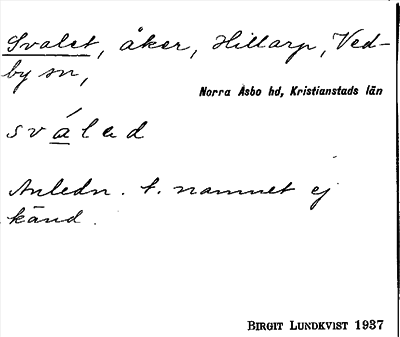 Svalet, åker, Hillarp, Ved-
by sn,
Norra Åsbo hd, Kristianstads län
sválad
Anledn. t. namnet ej
känd.
BIRGIT LUNDKVIST 1937